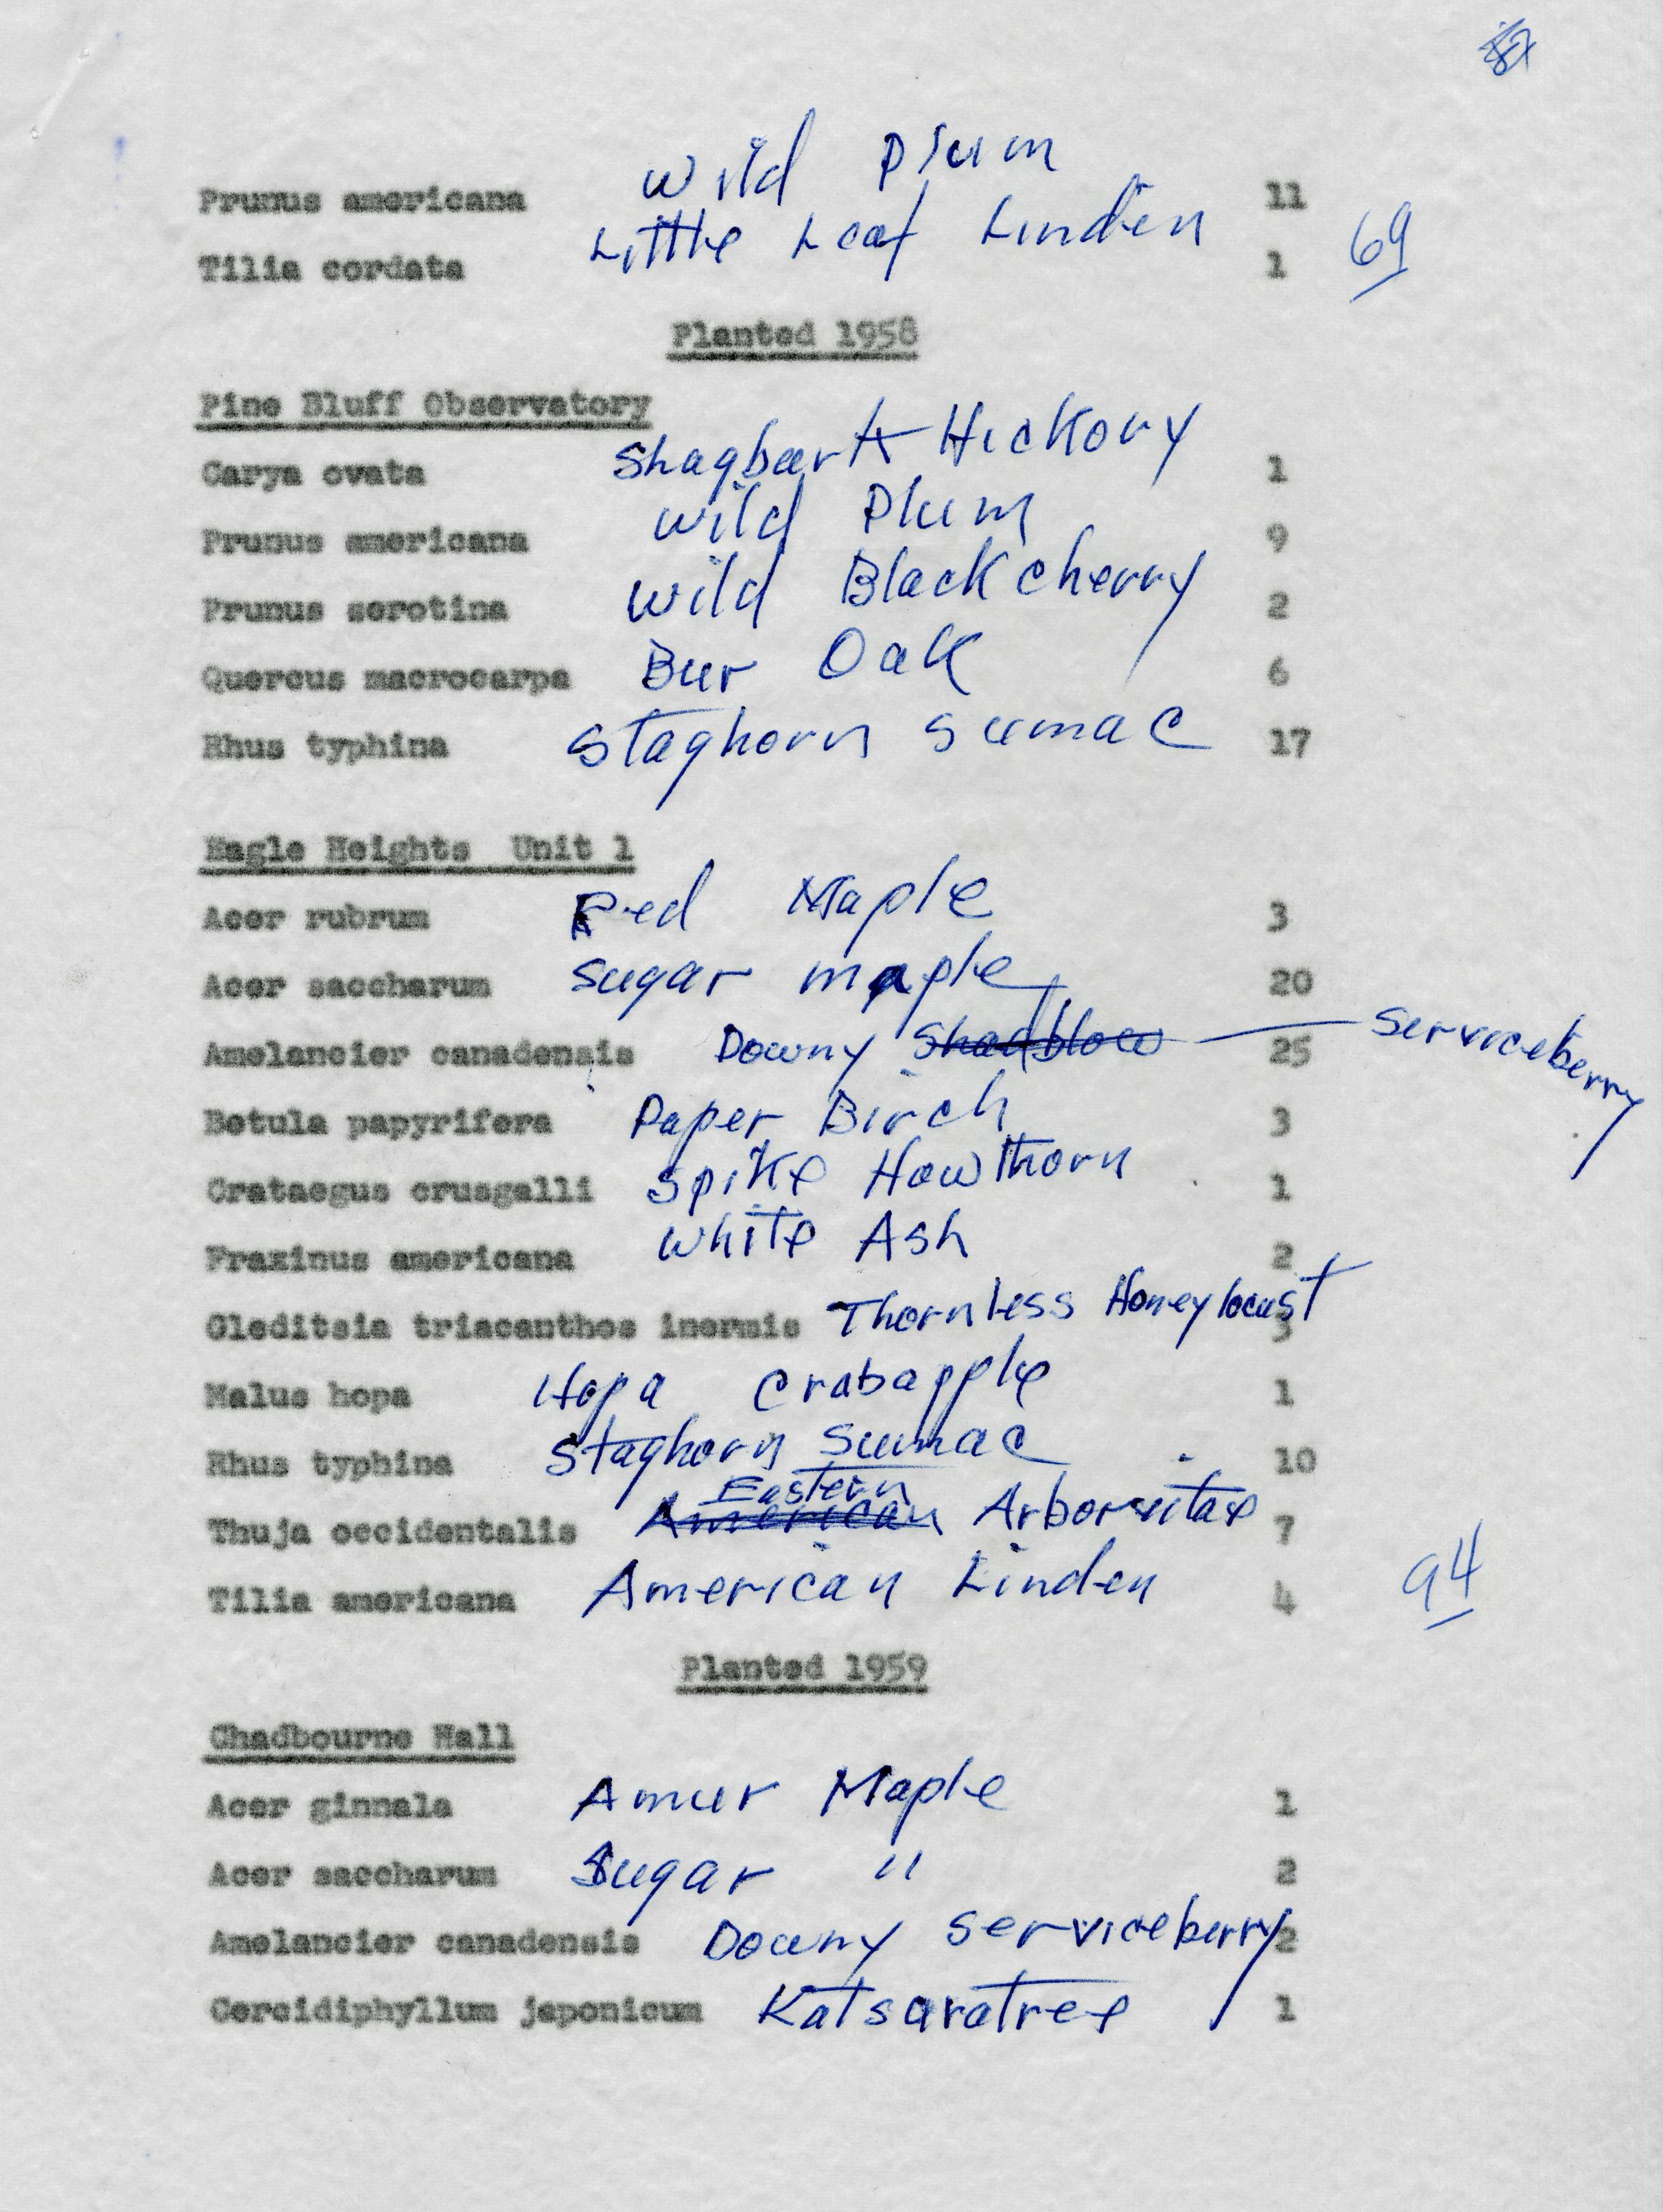 Prunus americana Wild Plum 11
Tilia cordata Little Leaf Linden 1 69
Planted 1958
Pine Bluff Observatory
Carya ovata Shagbark Hickory 1
Prunus americana Wild Plum 9
Prunus serotina Wild Black cherry 2
Quercus macrocarpa Bur Oak 6
Rhus typhina Staghorn Sumac 17
Eagle Heights Unit 1
Acer rubrum Red Maple 3
Acer saccharum Sugar maple 20
Amelancier canadensis Downy Shadblow 25 Serviceberry
Betula papyrifera Paper Birch 3
Crataegus crusgalli Spike Hawthorn 1
Fraxinus americana White Ash 2
Gleditsia triacanthos inermis Thornless Honeylocust 3
Malus hopa Hopa Crabapple 1
Rhus typhina Staghorn Sumac 10
Eastern
Thuja occidentalis American Arborvitae 7
Tilia americana American Linden 4 94
Planted 1959
Chadbourne Hall
Acer ginnala Amur Maple 1
Acer saccharum Sugar " 2
Amelancier canadensis Downy Serviceberry 2
Cercidiphyllum japonicum Katsuratree 1